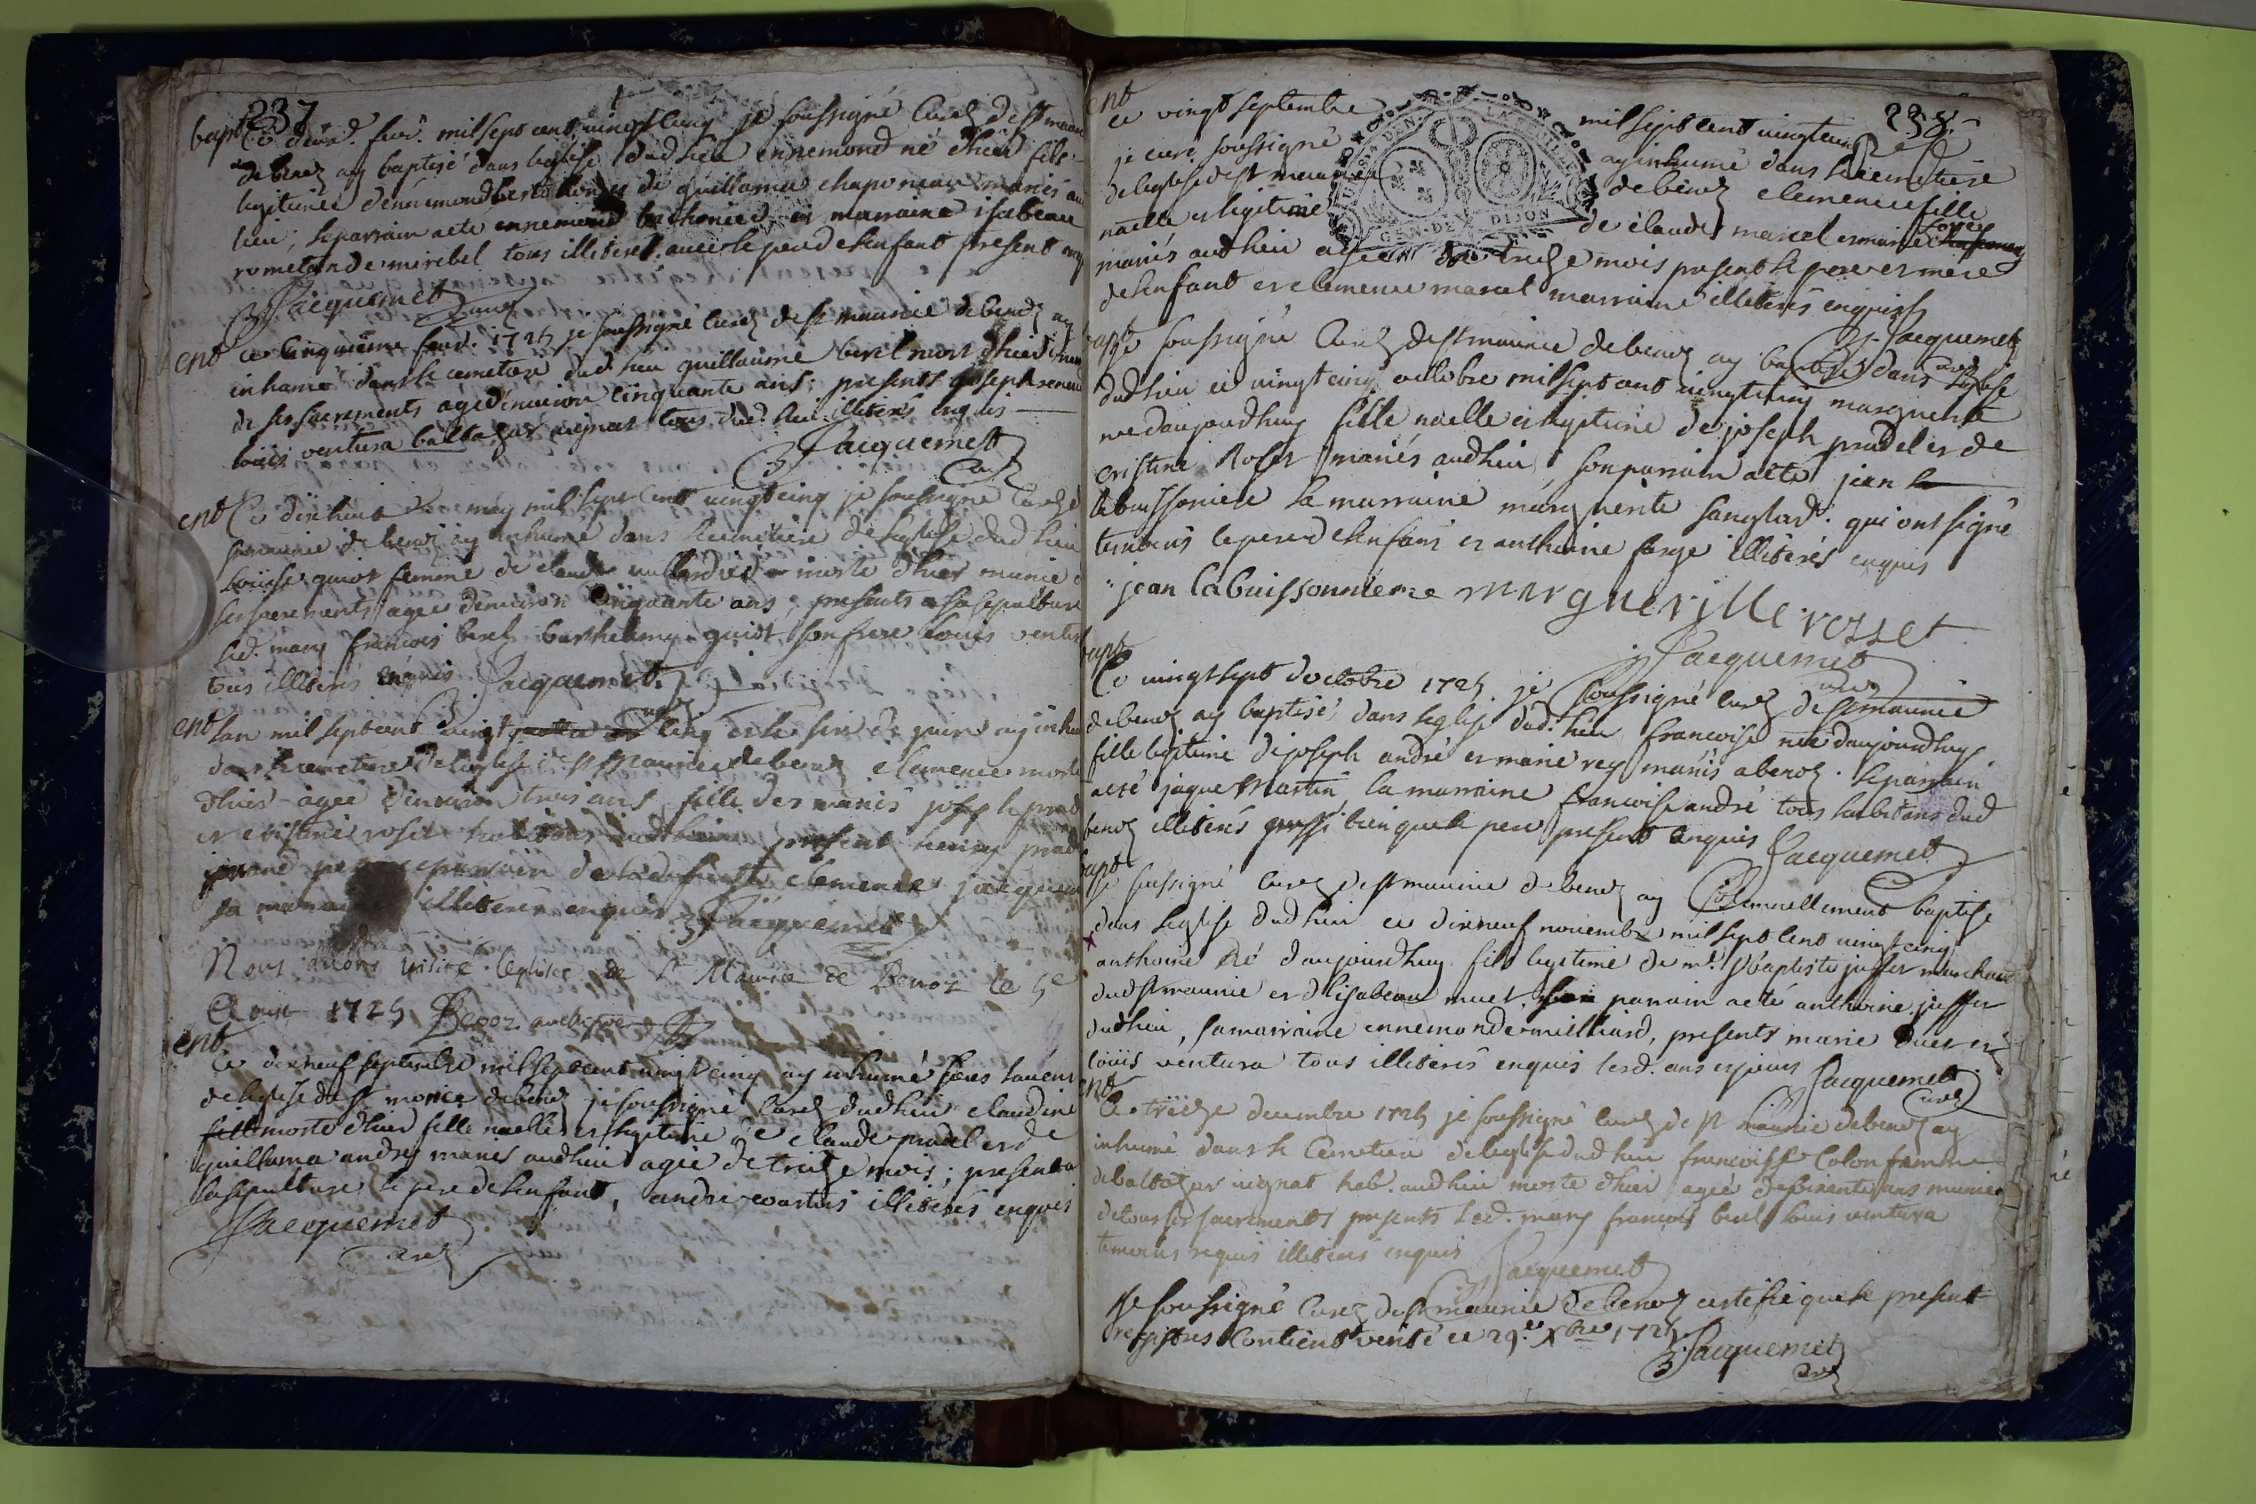 237
bapt Ce feur. mil sept cent vingt cinq je soussigné Curez de st mau
de benoz ay baptisé dans leglise dud lieu ennemond né d'hier fils
legitime d'ennemond et de guillauma chaponar mariés au
lieu, le parrain a eté ennemond et marraine isabeau
de mirebel tous illiterés avec le pere de lenfant present enq
Jacquemet
curez
ent ce cinquieme feur. 1725 je soussigné curez de st maurice de benoz ay
inhumé dans le cemetiere dud lieu guillaume berel mort d'hier muni
de ses sacrements agé d'environ cinquante ans; presents joseph
louis ventura baltazar vignat tous dud. lieu illiterés enquis
Jacquemet
curez
ent Ce dixhuit may mil sept cent vingt cinq je soussigné Curez d
st maurice de benoz ay inhumé dans le cemetiere de leglise dud lieu
Louise guiot femme de claude morte d'hier munie d
ses sacrements agée denviron cinquante ans; presents a sa sepulture
led. mary francois berel barthelemy guiot son frere louis ventur
tous illiterés enquis Jacquemet
curez
ent Lan mil sept cent vingt cinq et le six de juin ay inhu
dans le cemetiere de leglise de st Maurice de benoz clemence morte
d'hier agée d'environ trois ans fille des mariés joseph prad
et cristine roset habitans aud lieu present henry prad
grand pere parrain de lad. clemence
sa marraine illiterés enquis Jacquemet
Nous avons visité leglise de St Maurice de Benoz le 5e
Aoust 1725
ent
Ce dixneuf septembre mil sept cent vingt cinq ay inhumé
de leglise de st morice de benoz je soussigné Curez dud lieu claudine
morte d'hier fille naelle et legitime de claude pradel et de
guillauma andre mariés aud lieu agée de treize mois; presents a
sa sepulture le pere de lenfant, andre illiterés enquis
Jacquemet
curez
ent 238
ce vingt septembre mil sept cent vingt cinq
je curé soussigné ay inhumé dans le cemetiere
de leglise de st maurice de benoz clemence fille
naelle et legitime de claude marcel et marie
mariés aud lieu agée de treize mois present le pere et mere
de lenfant et clemence marcel marraine illiterés enquis
Jacquemet
curez
bapt
Je soussigné Curez de st maurice de benoz ay baptisé dans leglise
dud lieu ce vingt cinq octobre mil sept cent vingt cinq marguerite
née daujourdhuy fille naelle et legitime de joseph pradel et de
cristine Roset mariés aud lieu son parrain a eté jean
labuissoniere sa marraine marguerite sanglard. qui ont signé
temoins le pere de lenfant et anthoine farge illiterés enquis
jean labuissonniere
Jacquemet
curez
bapt
Ce vingt sept doctobre 1725 je soussigné curez de st maurice
de benoz ay baptisé dans leglise dud. lieu francoise née daujourdhuy
fille legitime de joseph andré et marie rey mariés a benoz. le parrain
a eté jaque Martin, la marraine francoise andré tous habitans dud
benoz illiterés aussi bien que le pere present enquis Jacquemet
bapt
Je soussigné curez de st maurice de benoz ay solemnellement baptise
dans leglise dud lieu ce dixneuf novembre mil sept cent vingt cinq
anthoine né daujourdhuy fils legitime de mr. Jbaptiste juffet marchand
dud st maurice et d'lisabeau muet. parrain a eté anthoine juffet
dud lieu, sa marraine ennemonde milliard, presents marie et
louis ventura tous illiterés enquis lesd. ans et jours Jacquemet
curez
ent
Ce treize decembre 1725 je soussigné curez de st maurice de benoz ay
inhumé dans le Cemetiere de leglise dud lieu francoise Colon femme
de baltazar vignat hab. aud lieu morte d'hier agée de soixante ans munie
de tous ses sacrements presents led. mary francois berel louis ventura
temoins requis illiterés enquis
Jacquemet
Je soussigné Curez de st maurice de benoz certifie que le present
registres contient verité ce 29e Xbre 1725
Jacquemet
curez